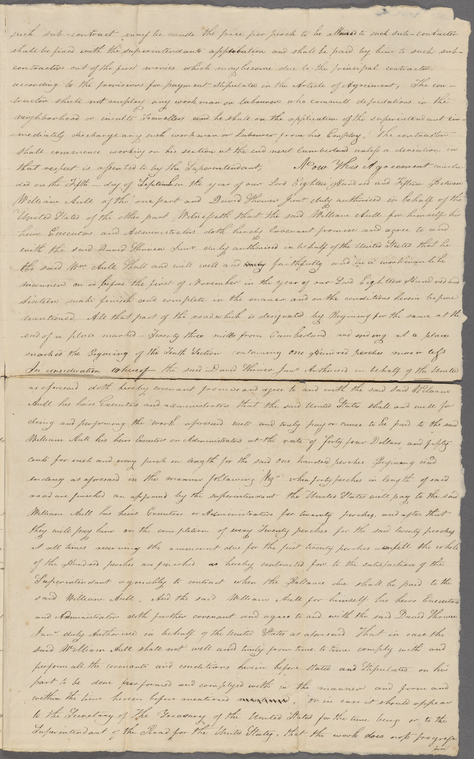 such sub-contract may be made the price per perch to be allowed to such sub-contractor
shall be paid with the superintendants approbation and shall be paid by him to such sub-
contractors out of the first monies which may become due to the principal contractor
according to the provisions for payment stipulated in the Article of Agreement, The con-
tractor shall not employ any workman or labourer who commits depredations in the
neighbourhood or insults Travellers and he shall on the application of the superintendant im-
mediately discharge any such workman or labourer from his Employ, The contractor
shall commence working on his section at the end next Cumberland unless a deviation in
that respect is assented to by the Superintendant, Now This Agreement
on the Fifth day of September the year of our Lord Eighteen Hundred and Fifteen Between
William Aull of the one part and David Shriver Junr duly authorised in behalf of the
United States of the other part Witnesseth that the said William Aull for himself his
heirs Executors and Administrators doth hereby covenant promise and agree to and
with the said David Shriver Junr duly authorised in behalf of the United States that he
the said Wm Aull Shall and will well and faithfully and in a workmanlike
manner on or before the first of November in the year of our Lord Eighteen Hundred and
Sixteen make finish and complete in the manner and on the conditions herein before
mentioned All that part of the road which is designated by Begining for the same at the
end of a place marked Twenty three miles from Cumberland and ending at a place
marked the Begining of the Tenth Section containing one Hundred perches more or less
In consideration whereof the said David Shriver Junr Authorised in behalf of the United
as aforesaid doth hereby covenant promise and agree to and with the said William
Aull his heirs Executors and administrators that the said United States shall and will for
doing and performing the work aforesaid well and truly pay or cause to be paid to the said
William Aull his heirs Executors or Administrators at the rate of forty four Dollars and fifty
cents for each and every perch in length for the said one hundred perches Begining and
ending as aforesaid in the manner following Viz when forty perches in length of said
road are finished and approved by the superintendant the United States will pay to the said
William Aull his heirs Executors or Administrators for twenty perches, and after that
they will pay him on the completion of every Twenty perches for the said twenty perches
at all times reserving the amount due for the first twenty perches untill the whole
of the Hundred perches are finished as hereby contracted for to the satisfaction of the
Superintendant agreeably to contract when the Ballance due shall be paid to the
said William Aull. And the said William Aull for himself his heirs Executors
and Administrators doth further covenant and agree to and with the said David Shriver
Junr duly Authorised in behalf of the United States as aforesaid That in case the
said William Aull shall not well and truly from time to time comply with and
perform all the covenants and conditions herein before stated and stipulated on his
part to be done performed and complyed with in the manner and form and
within the time herein before mentioned or in case it should appear
to the Secretary of The Treasury of the United States for the time being or to the
Superintendant of the Road for the United States, that the work does not progress